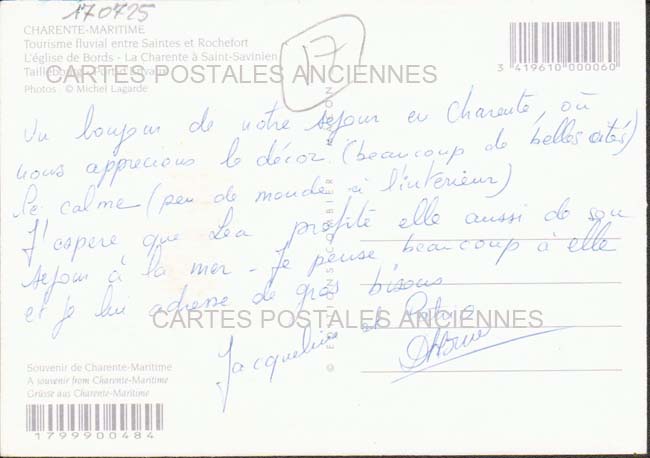 170725
CHARENTE-MARITIME
Tourisme fluvial entre Saintes et Rochefort
L'église de Bords - La Charente à Saint-Savinien
Taillebourg
Photos : © Michel Lagarde
17
3 419610 000060
CARTES POSTALES ANCIENNES
Un bonjour de notre séjour en Charente, où
nous apprecions le décor (beaucoup de belles cités)
le calme (peu de monde à l'interieur)
J'espere que Lea profite elle aussi de son
sejour à la mer - Je pense beaucoup à elle
et je lui adresse de gros bisous
CARTES POSTALES ANCIENNES
Jacqueline et
© EDITIONS COMBIER MACON
Souvenir de Charente-Maritime
A souvenir from Charente-Maritime
Grüsse aus Charente-Maritime
1799900484